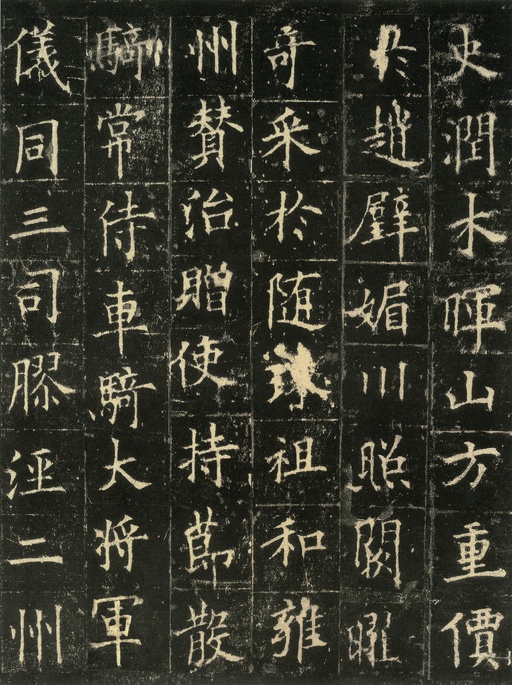 史潤木暉山方重價
於趙璧媚川照闕曜
奇采於随珠祖和雍
州賛治贈使持節散
騎常侍車騎大將軍
儀同三司膠涇二州